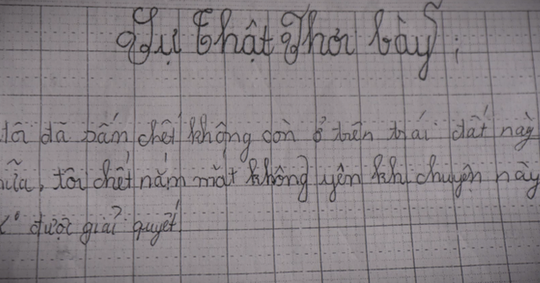 Sự thật Phơi bày:
tôi đã bấm chết không còn ở trên trái đất này
nữa, tôi chết nằm mắt không yên khi chuyện này
được giải quyết